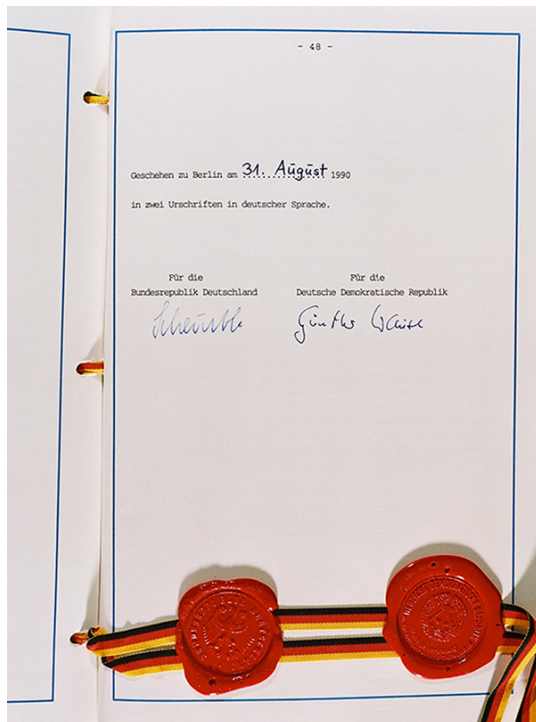 - 48 -
Geschehen zu Berlin am 31. August 1990
in zwei Urschriften in deutscher Sprache.
Für die
Bundesrepublik Deutschland
Für die
Deutsche Demokratische Republik
Schäuble
Günther Krause